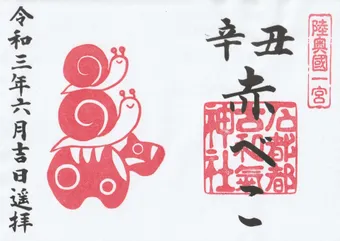 陸奥國一宮
丑
辛
赤べこ
石都都
古和氣
神社
令和三年六月吉日遥拝